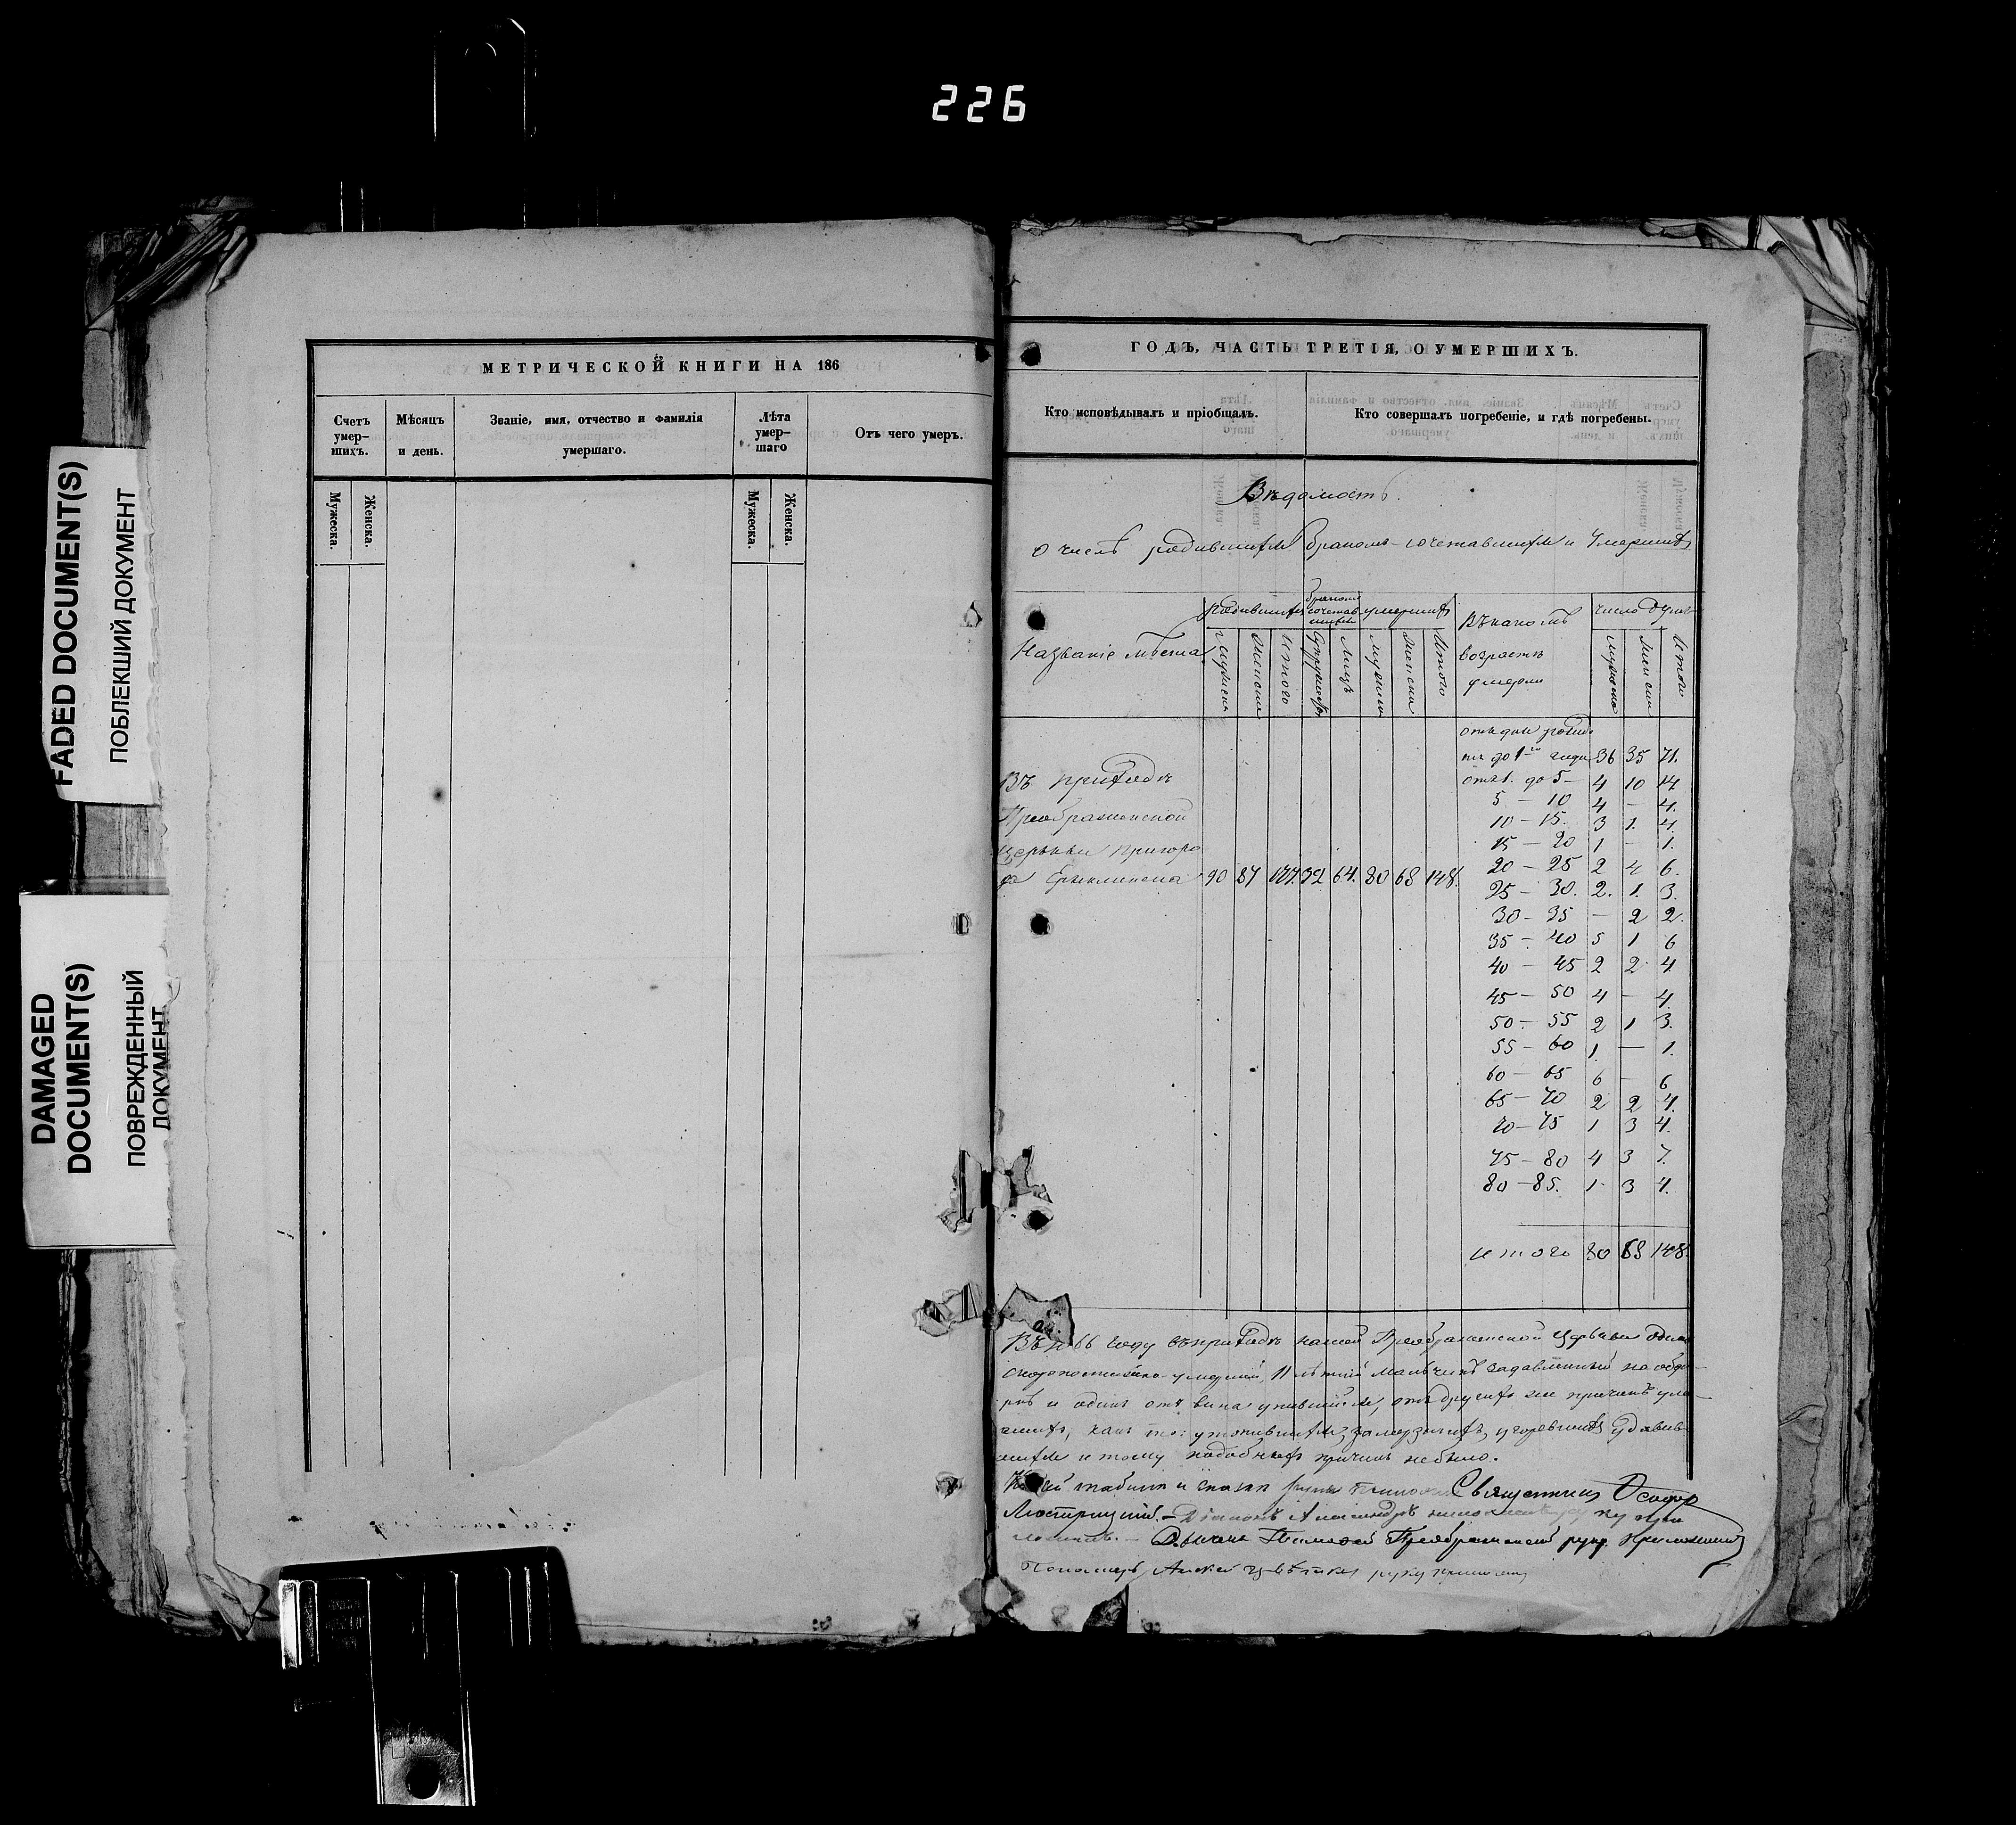 226
FADED DOCUMENT(S)
ПОБЛЕКШИЙ ДОКУМЕНТ
DAMAGED
DOCUMENT(S)
ПОВРЕЖДЕННЫЙ
ДОКУМЕНТ
МЕТРИЧЕСКОЙ КНИГИ НА 186
Счетъ умер-шихъ.
Мѣсяцъ и день.
Званіе, имя, отчество и фамилія умершаго.
Лѣта умер-шаго
Отъ чего умеръ.
Мужеска. Женска.
Мужеска. Женска.
ГОДЪ, ЧАСТЬ ТРЕТІЯ, О УМЕРШИХЪ.
Кто исповѣдывалъ и пріобщалъ.
Кто совершалъ погребеніе, и гдѣ погребены.
Вѣдомость.
о числѣ родившихся бракомъ-сочетавшихся и умершихъ
Названіе мѣста
родившихся
бракомъ сочетавшихся
умершихъ
Въ какомъ
возрастѣ
умерли
число душъ
мужска женска итого
супружествъ лицъ
мужска женска итого
мужска женска итого
Въ приходѣ
Преображенской
Церкви пригоро
да 90 87 177 32 64. 80 68 148.
отъ дня рожде
нія до 1го года 36 35 71.
отъ 1. до 5 – 4 10 14
5 – 10 4 – 4.
10 – 15. 3 1. 4.
15 – 20 1 – 1.
20 – 25 2 4 6.
25 – 30. 2. 1. 3.
30 – 35 – 2 2.
35 – 40 5 1 6
40 – 45 2 2 4
45 – 50 4 – 4.
50 – 55 2 1 3.
55 – 60 1. – 1.
60 – 65 6 – 6
65 – 70 2 2 4.
70 – 75 1 3 4.
75 – 80 4 3 7.
80 – 85. 1 3 4.
итого 80 68 148.
году въ приходѣ нашей Преображенской Церкви одинъ
скоропостижно умершій, 11 лѣтній мальчикъ задавленный
и одинъ отъ вина, отъ другихъ же причинъ уме
ршихъ, какъ то: утонувшихъ, замерзшихъ, угорѣвшихъ удавив
шихся и тому подобныхъ причинъ не было.
Священникъ
Діаконъ Александръ
Дьячокъ Преображенскій руку приложилъ
Пономарь руку приложилъ